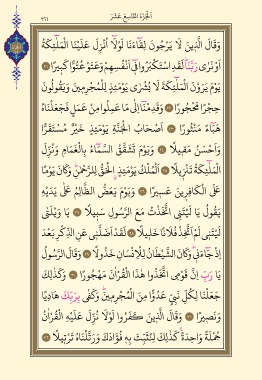 الجزء التاسع عشر
٣٦١
وَقَالَ الَّذِينَ لَا يَرْجُونَ لِقَاءَنَا لَوْلَا أُنْزِلَ عَلَيْنَا الْمَلٰئِكَةُ
أَوْ نَرٰى رَبَّنَا لَقَدِ اسْتَكْبَرُوا فِي أَنْفُسِهِمْ وَعَتَوْ عُتُوًّا كَبِيرًا ٢١
يَوْمَ يَرَوْنَ الْمَلٰئِكَةَ لَا بُشْرٰى يَوْمَئِذٍ لِلْمُجْرِمِينَ وَيَقُولُونَ
حِجْرًا مَحْجُورًا ٢٢ وَقَدِمْنَا إِلٰى مَا عَمِلُوا مِنْ عَمَلٍ فَجَعَلْنَاهُ
هَبَاءً مَنْثُورًا ٢٣ أَصْحَابُ الْجَنَّةِ يَوْمَئِذٍ خَيْرٌ مُسْتَقَرًّا
وَأَحْسَنُ مَقِيلًا ٢٤ وَيَوْمَ تَشَقَّقُ السَّمَاءُ بِالْغَمَامِ وَنُزِّلَ
الْمَلٰئِكَةُ تَنْزِيلًا ٢٥ اَلْمُلْكُ يَوْمَئِذٍ الْحَقُّ لِلرَّحْمٰنِ وَكَانَ يَوْمًا
عَلَى الْكَافِرِينَ عَسِيرًا ٢٦ وَيَوْمَ يَعَضُّ الظَّالِمُ عَلٰى يَدَيْهِ
يَقُولُ يَا لَيْتَنِي اتَّخَذْتُ مَعَ الرَّسُولِ سَبِيلًا ٢٧ يَا وَيْلَتٰى
لَيْتَنِي لَمْ أَتَّخِذْ فُلَانًا خَلِيلًا ٢٨ لَقَدْ أَضَلَّنِي عَنِ الذِّكْرِ بَعْدَ
إِذْ جَاءَنِي وَكَانَ الشَّيْطَانُ لِلْإِنْسَانِ خَذُولًا ٢٩ وَقَالَ الرَّسُولُ
يَا رَبِّ إِنَّ قَوْمِي اتَّخَذُوا هٰذَا الْقُرْاٰنَ مَهْجُورًا ٣٠ وَكَذٰلِكَ
جَعَلْنَا لِكُلِّ نَبِيٍّ عَدُوًّا مِنَ الْمُجْرِمِينَ وَكَفٰى بِرَبِّكَ هَادِيًا
وَنَصِيرًا ٣١ وَقَالَ الَّذِينَ كَفَرُوا لَوْلَا نُزِّلَ عَلَيْهِ الْقُرْاٰنُ
جُمْلَةً وَاحِدَةً كَذٰلِكَ لِنُثَبِّتَ بِهِ فُؤَادَكَ وَرَتَّلْنَاهُ تَرْتِيلًا ٣٢